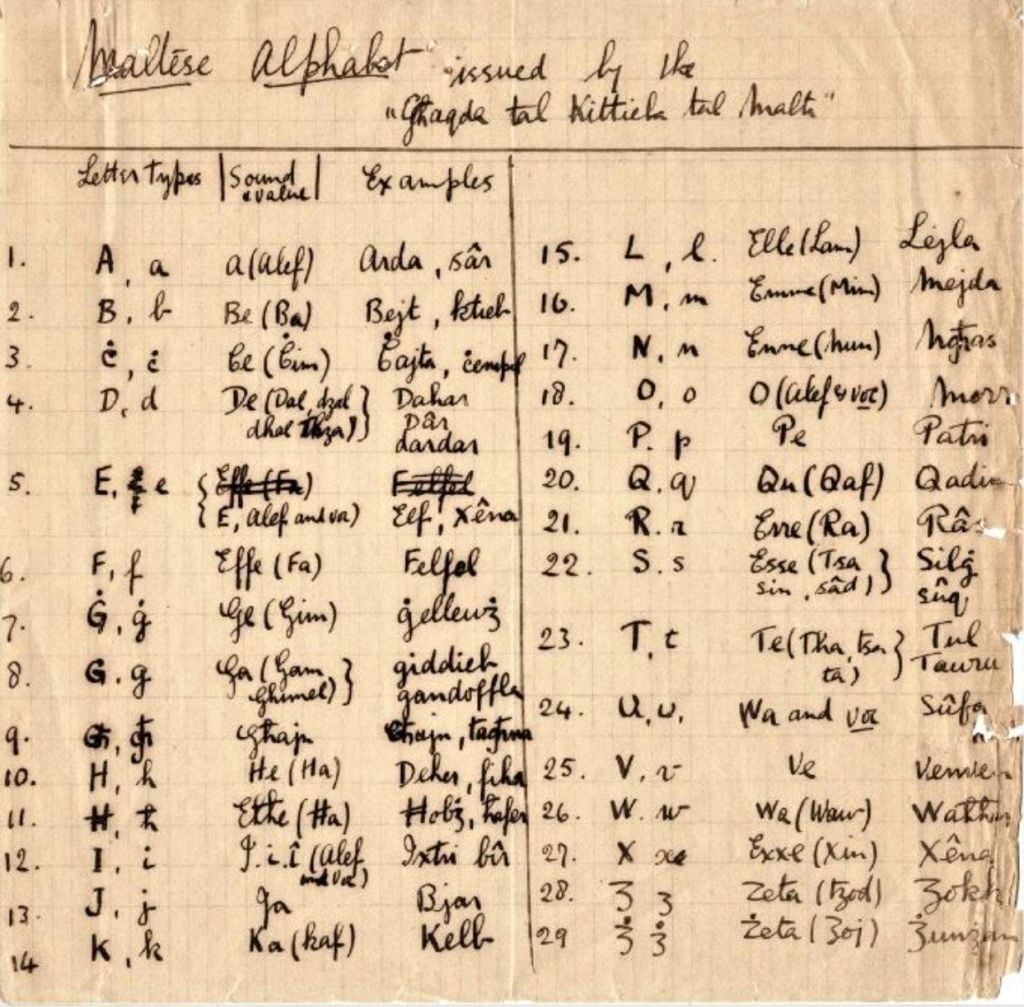 Maltese Alphabet issued by the
"Għaqda tal Kittieba tal Malti"
Letter types | Sound value | Examples
1. A, a a (Alef) Arda, sâr
2. B, b Be (Ba) Bejt, ktieb
3. Ċ, ċ Ċe (Ċim) Ċajta, ċempel
4. D, d De (Dal, dzal } Dahar
dhal }) Dâr
dardar
5. E, e { Effe (Fa) Felfel
{ E, Alef and voc) Elf, Xêna
6. F, f Effe (Fa) Felfel
7. Ġ, ġ Ġe (Ġim) ġellewż
8. G. g Ga (Gam } giddieb
Ghimel) } gandoffla
9. Għ, għ Għajn Għajn, tagħna
10. H, h He (Ha) Deher, fiha
11. Ħ, ħ Eħħe (Ħa) Ħobż, ħafer
12. I, i I. i. î (Alef Ixtri bîr
and voc)
13. J, j Ja Bjar
14 K, k Ka (kaf) Kelb
15. L, l. Elle (Lam) Lejla
16. M, m Emme (Mim) Mejda
17. N, n Enne (Nun) Ngħas
18. O, o O (Alef & voc) Morr
19. P. p Pe Patri
20. Q. q Qu (Qaf) Qadim
21. R. r Erre (Ra) Râs
22. S. s Esse (Tsa } Silġ
sin, sâd) } sûq
23. T, t Te (Tha, tsa } Tul
ta) } Tawru
24. U, u, Wa and voc Sûfa
25. V, v Ve Venven
26. W. w Wa (Waw)
27. X x Exxe (Xin) Xêna
28. Z z Zeta (tzod) Zokk
29 Ż ż Żeta (Żoj) Żunżan